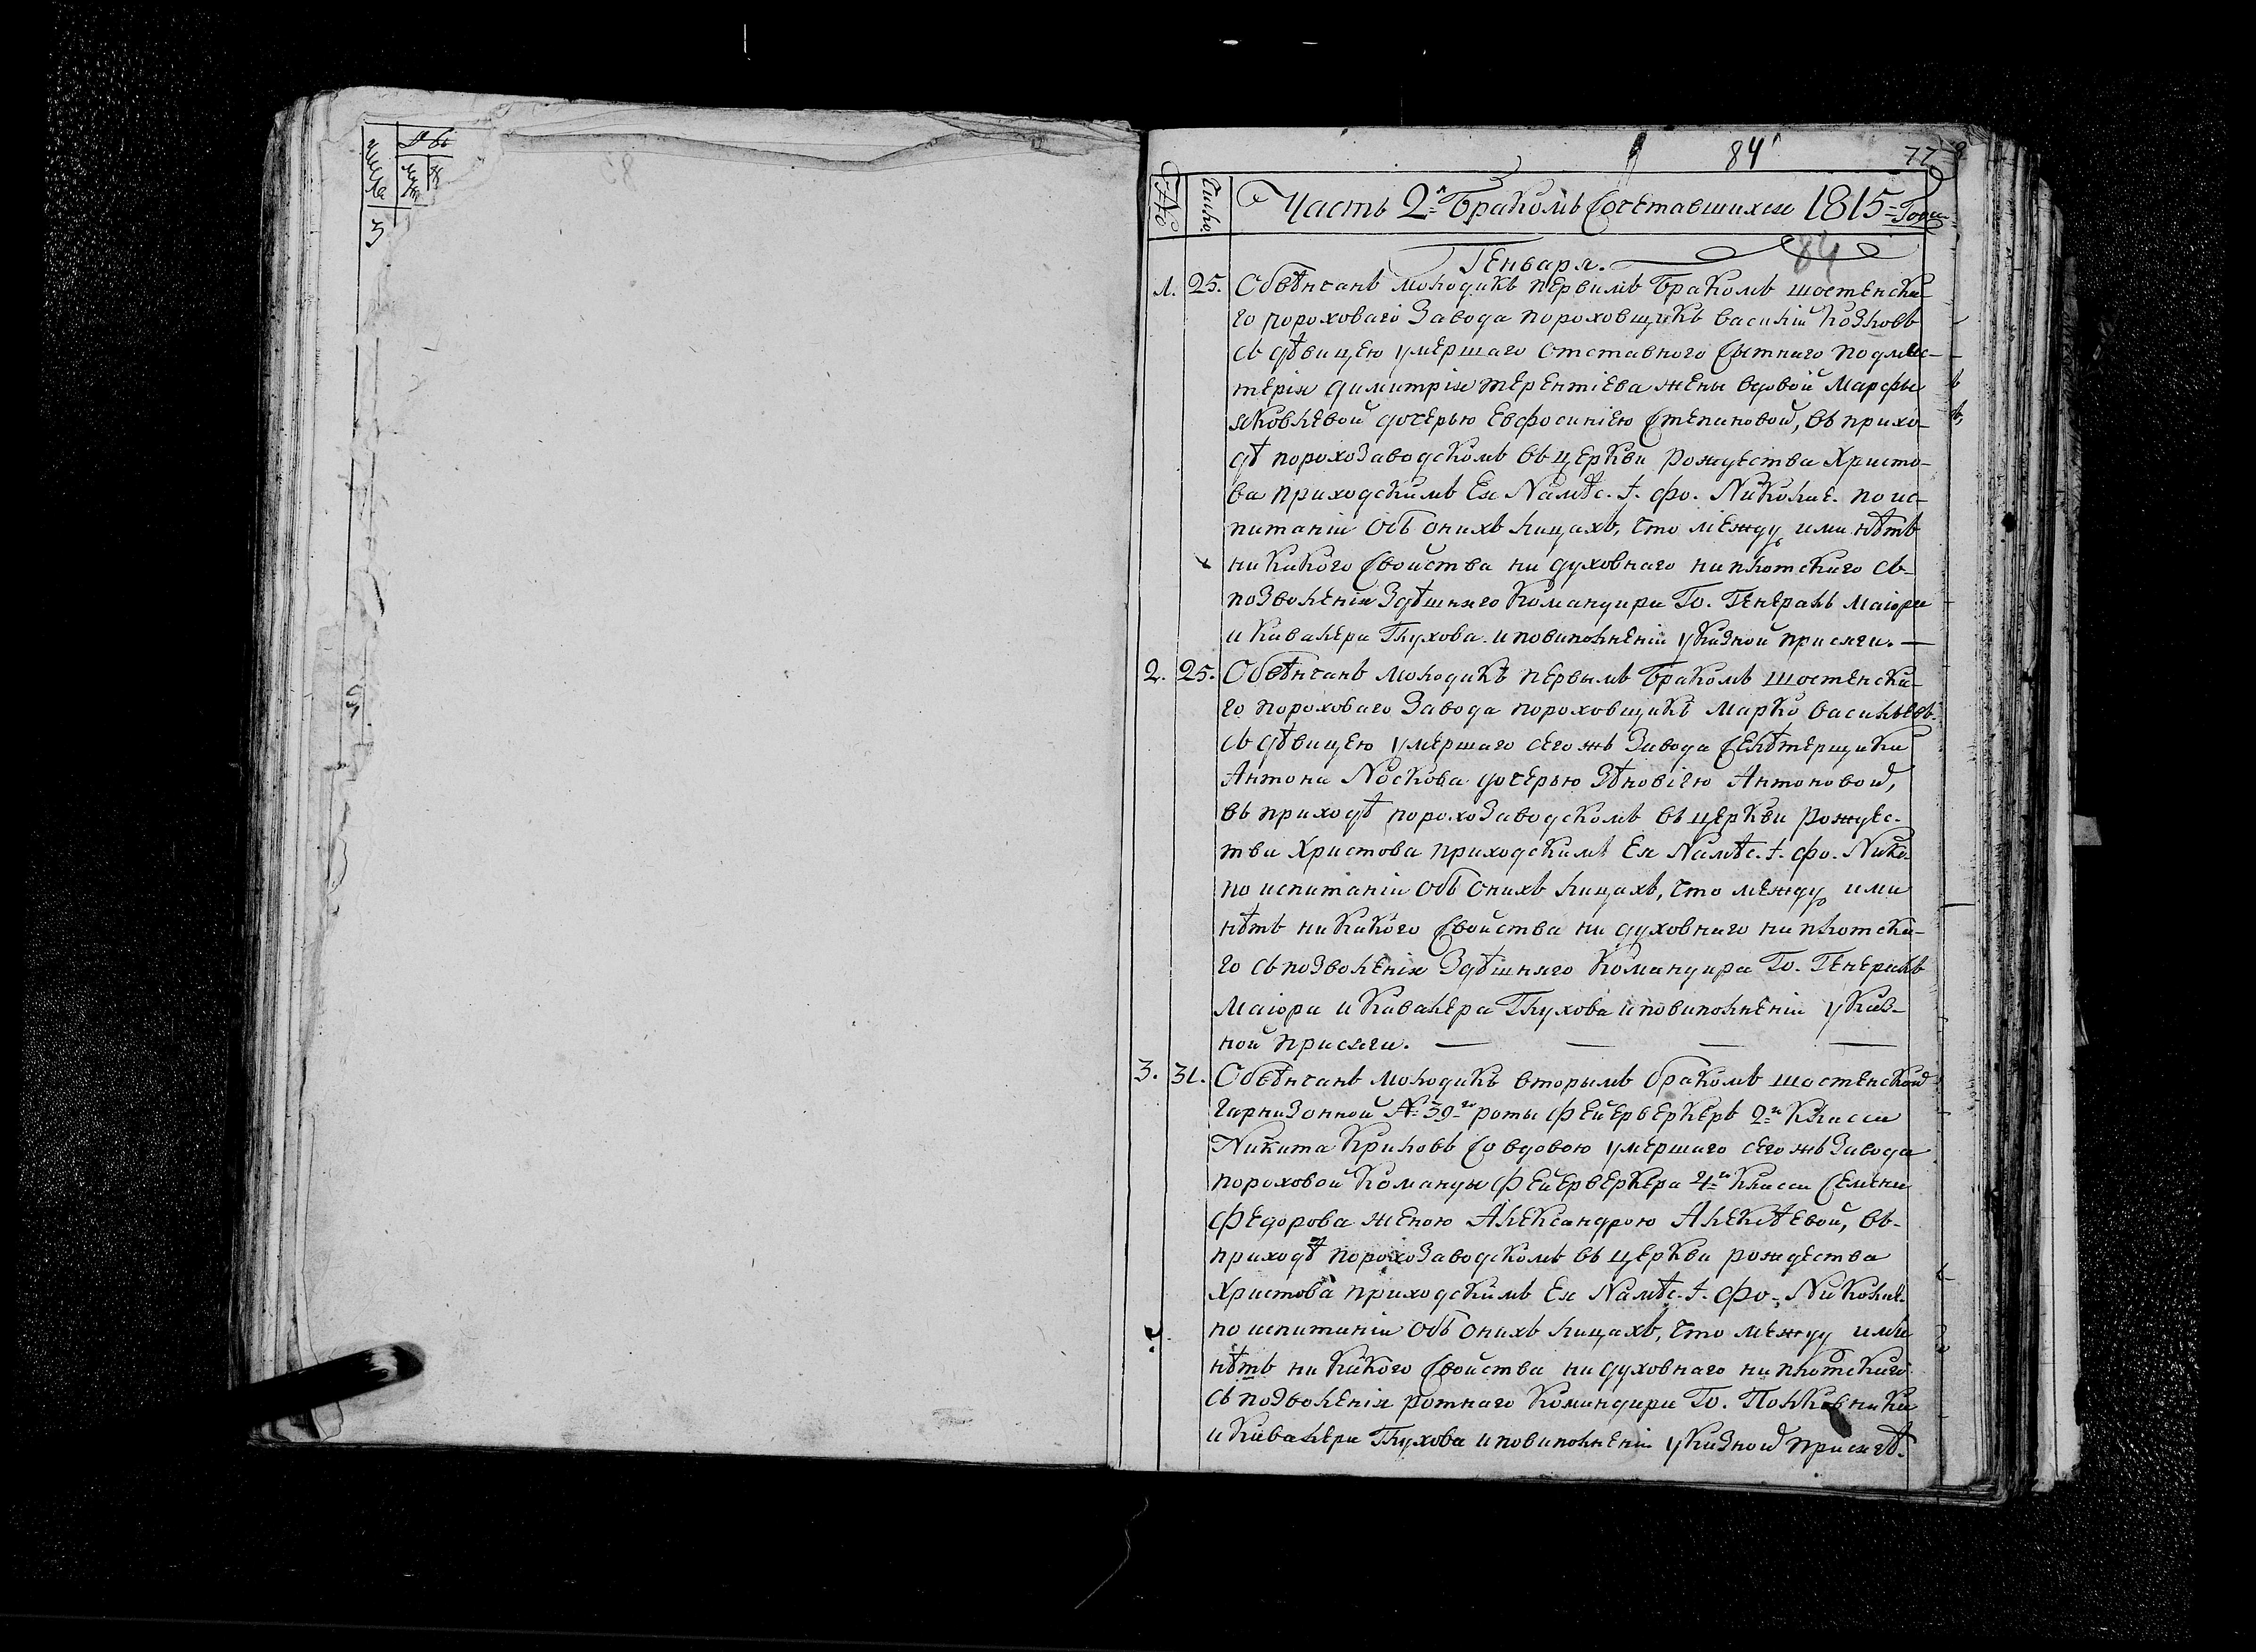 84
77
№
Число.
Часть 2я Бракомъ Сочетавшихся 1815 = Года
84
Генваря.
1. 25. Обвѣнчанъ молодикъ первимъ Бракомъ шостенска-
го пороховаго Завода пороховщикъ василій Козловъ
съ дѣвицею умершаго отставного Сытнаго подмас-
терія димитрія терентіева жены вдовой Марфы
яковлевой дочерью Евфосиніею Степановой, въ прихо-
дѣ порохозаводскомъ въ церкви рождества Христо-
ва приходскимъ Ея Намѣс. І. фо. Николае. по ис-
питаніи объ онихъ лицахъ, что между ими нѣтъ
никакого Свойства ни духовнаго ни плотскаго съ-
позволенія Здѣшняго Командира Го. Генералъ Маіора
и Кавалера Глухова и повиполненіи указной присяги. —
2. 25. Обвѣнчанъ молодикъ первымъ Бракомъ шостенска-
го пороховаго Завода пороховщикъ Марко васильевъ
съ дѣвицею умершаго сегожъ Завода Селѣтерщика
Антона Носкова дочерью Зѣновіею Антоновой,
въ приходѣ порохозаводскомъ въ церкви рождес-
тва Христова приходскимъ Ея Намѣс. І. фо. Нико.
по испитаніи объ онихъ лицахъ, что между ими
нѣтъ никакого Свойства ни духовнаго ни плотска-
го съ позволенія Здѣшняго Командира Го. Генералъ
Маіора и Кавалера Глухова и повиполненіи указ-
ной присяги. — — — —
3. 31. Обвѣнчанъ молодикъ вторымъ бракомъ шостенской
гарнизонной № 39-го роты Фейерверкеръ 2го Класса
Никита Криловъ Со вдовою умершаго сегожъ Завода
пороховой Команды Фейерверкера 4го Класса Семена
Федорова женою Александрою Алексѣевой, въ-
приходѣ порохозаводскомъ въ церкви рождества
Христова приходскимъ Ея Намѣс. І. фо. Николае.
по испитаніи объ онихъ лицахъ, что между ими
нѣтъ никакого Свойства ни духовнаго ни плотскаго
съ позволенія ротнаго Командира Го. Полковника
и Кавалера Глухова и повиполненіи указной присягѣ.